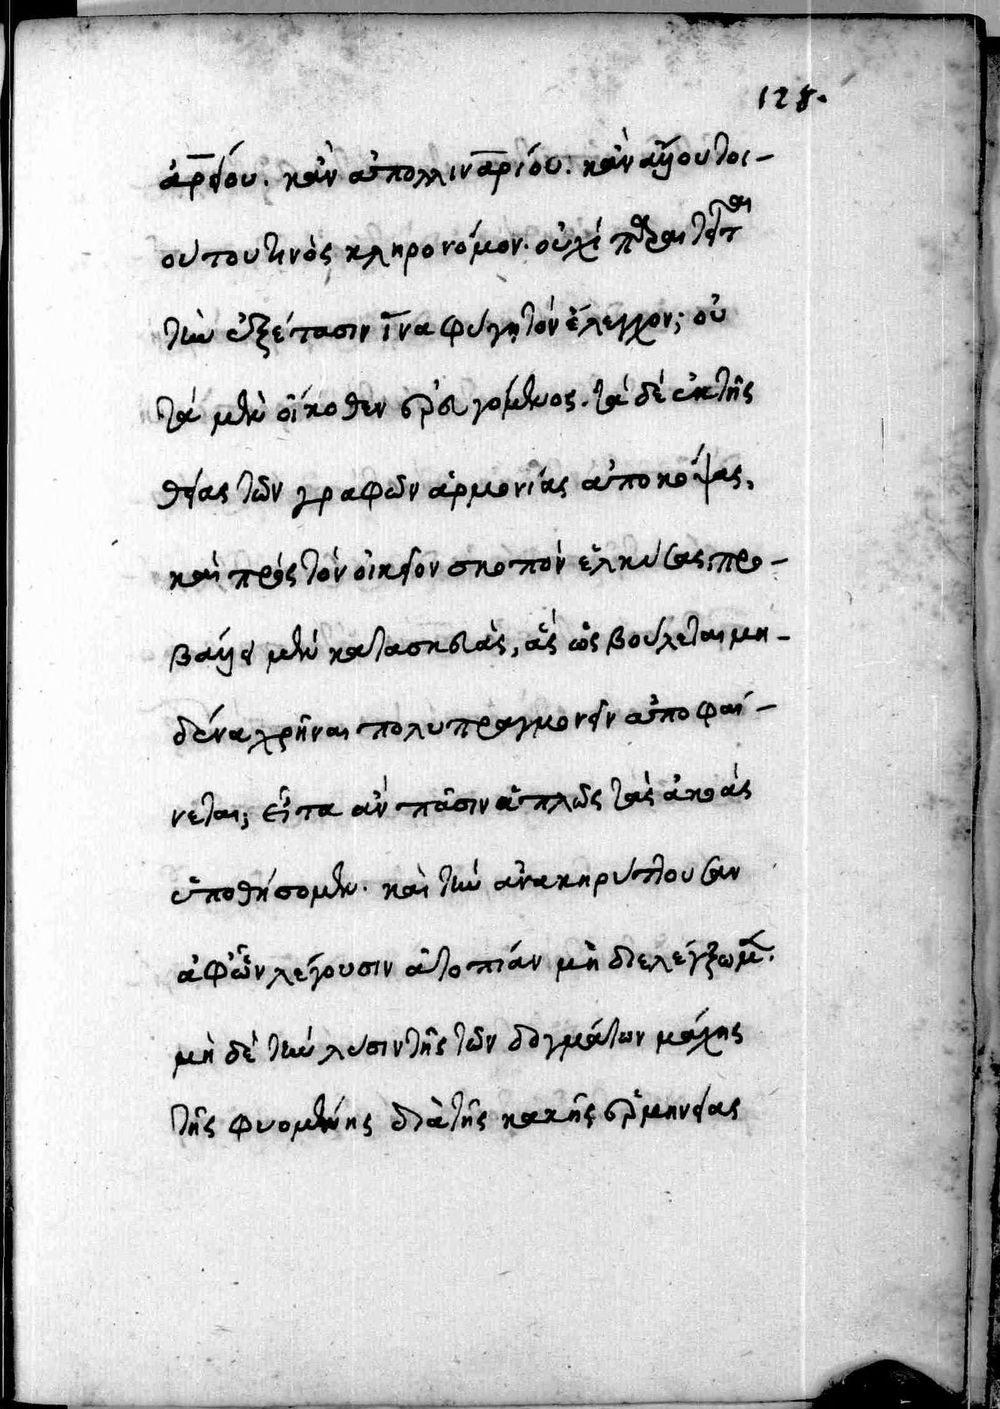 128.
ἀρείου. κἂν ἀπολλιναρίου. κἂν ἄλλου τοι-
ούτου τινὸς κληρονόμον. οὐχὶ παραιτεῖται
τὴν ἐξέτασιν ἵνα φύγῃ τὸν ἔλεγχον; οὐ
τὰ μὲν οἴκοθεν ἐρευγόμενος. τὰ δὲ ἐκ τῆς
θείας τῶν γραφῶν ἁρμονίας ἀποκόψας,
καὶ πρὸς τὸν οἰκεῖον σκοπὸν ἑλκύσας, προ-
βάλλει μὲν κατασκευὰς, ἃς ὡς βούλεται μη-
δένα χρῆναι πολυπραγμονεῖν ἀποφαί-
νεται; εἶτα ἂν πᾶσιν ἁπλῶς τὰς ἀκοὰς
ὑποθήσομεν. καὶ τὴν ἀνακηρύττουσαν
ἀφ' ὧν λέγουσιν ἀτοπίαν μὴ διελέγξωμεν.
μὴ δὲ τὴν λύσιν τῆς τῶν δογμάτων μάχης
τῆς φυομένης διὰ τῆς κακῆς ἑρμηνείας